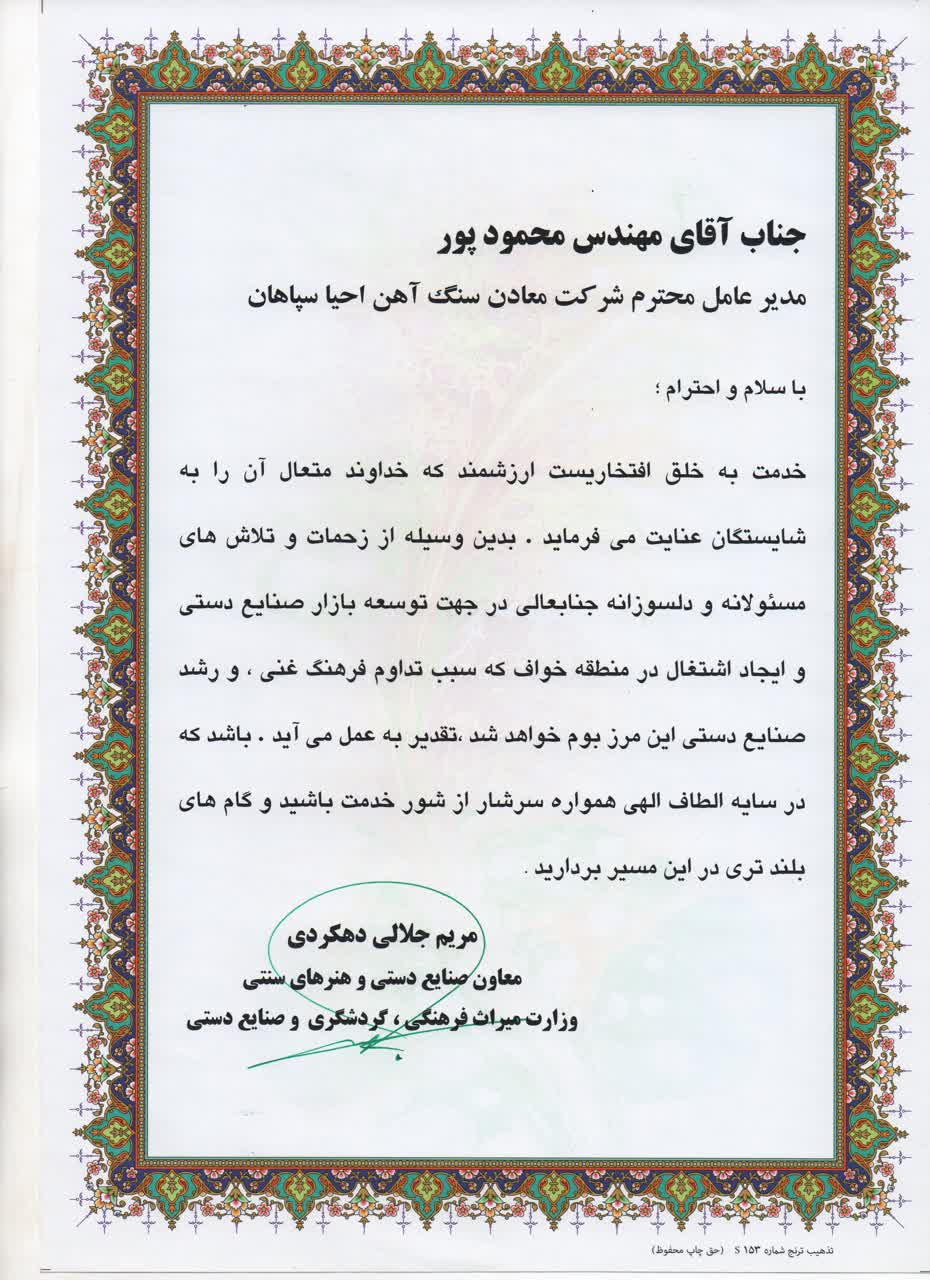 جناب آقای مهندس محمود پور
مدیر عامل محترم شرکت معادن سنگ آهن احیا سپاهان
با سلام و احترام ؛
خدمت به خلق افتخاریست ارزشمند که خداوند متعال آن را به
شایستگان عنایت می فرماید . بدین وسیله از زحمات و تلاش های
مسئولانه و دلسوزانه جنابعالی در جهت توسعه بازار صنایع دستی
و ایجاد اشتغال در منطقه خواف که سبب تداوم فرهنگ غنی ، و رشد
صنایع دستی این مرز بوم خواهد شد ،تقدیر به عمل می آید . باشد که
در سایه الطاف الهی همواره سرشار از شور خدمت باشید و گام های
بلند تری در این مسیر بردارید .
مریم جلالی دهکردی
معاون صنایع دستی و هنرهای سنتی
وزارت میراث فرهنگی ، گردشگری و صنایع دستی
تذهیب ترنج شماره S ۱۵۳ (حق چاپ محفوظ)